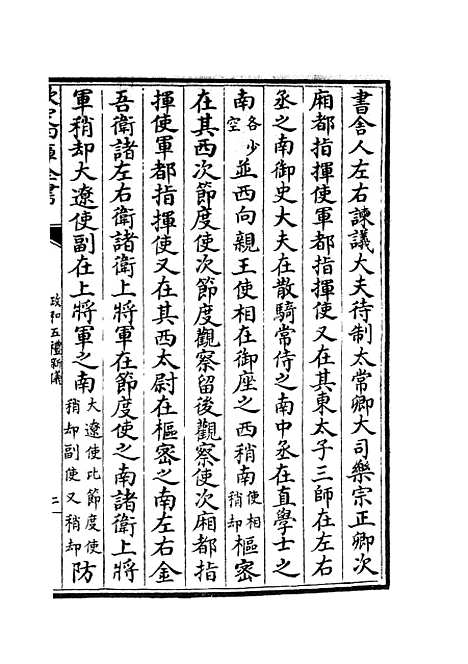 書舍人左右諫議大夫待制太常卿大司樂宗正卿次
廂都指揮使軍都指揮使又在其東太子三師在左右
丞之南御史大夫在散騎常侍之南中丞在直學士之
南各少空並西向親王使相在御座之西稍南使相稍却樞密
在其西次節度使次節度觀察留後觀察使次廂都指
揮使軍都指揮使又在其西太尉在樞密之南左右金
吾衛諸左右衛諸衛上將軍在節度使之南諸衛上將
軍稍却大遼使副在上將軍之南大遼使比節度使稍却副使又稍却防
欽定四庫全書
政和五禮新儀
二